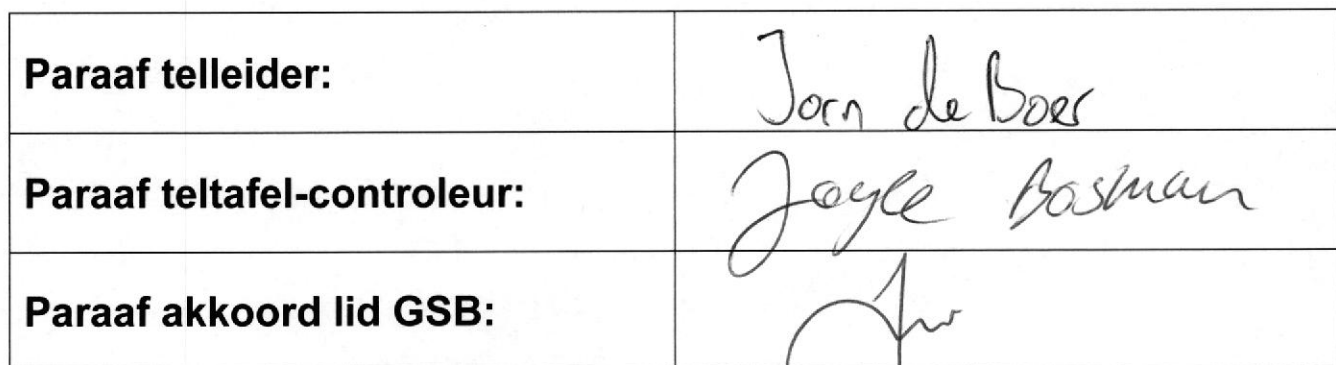 Paraaf telleider: Jorn de Boer
Paraaf teltafel-controleur: Joyce Bosman
Paraaf akkoord lid GSB: